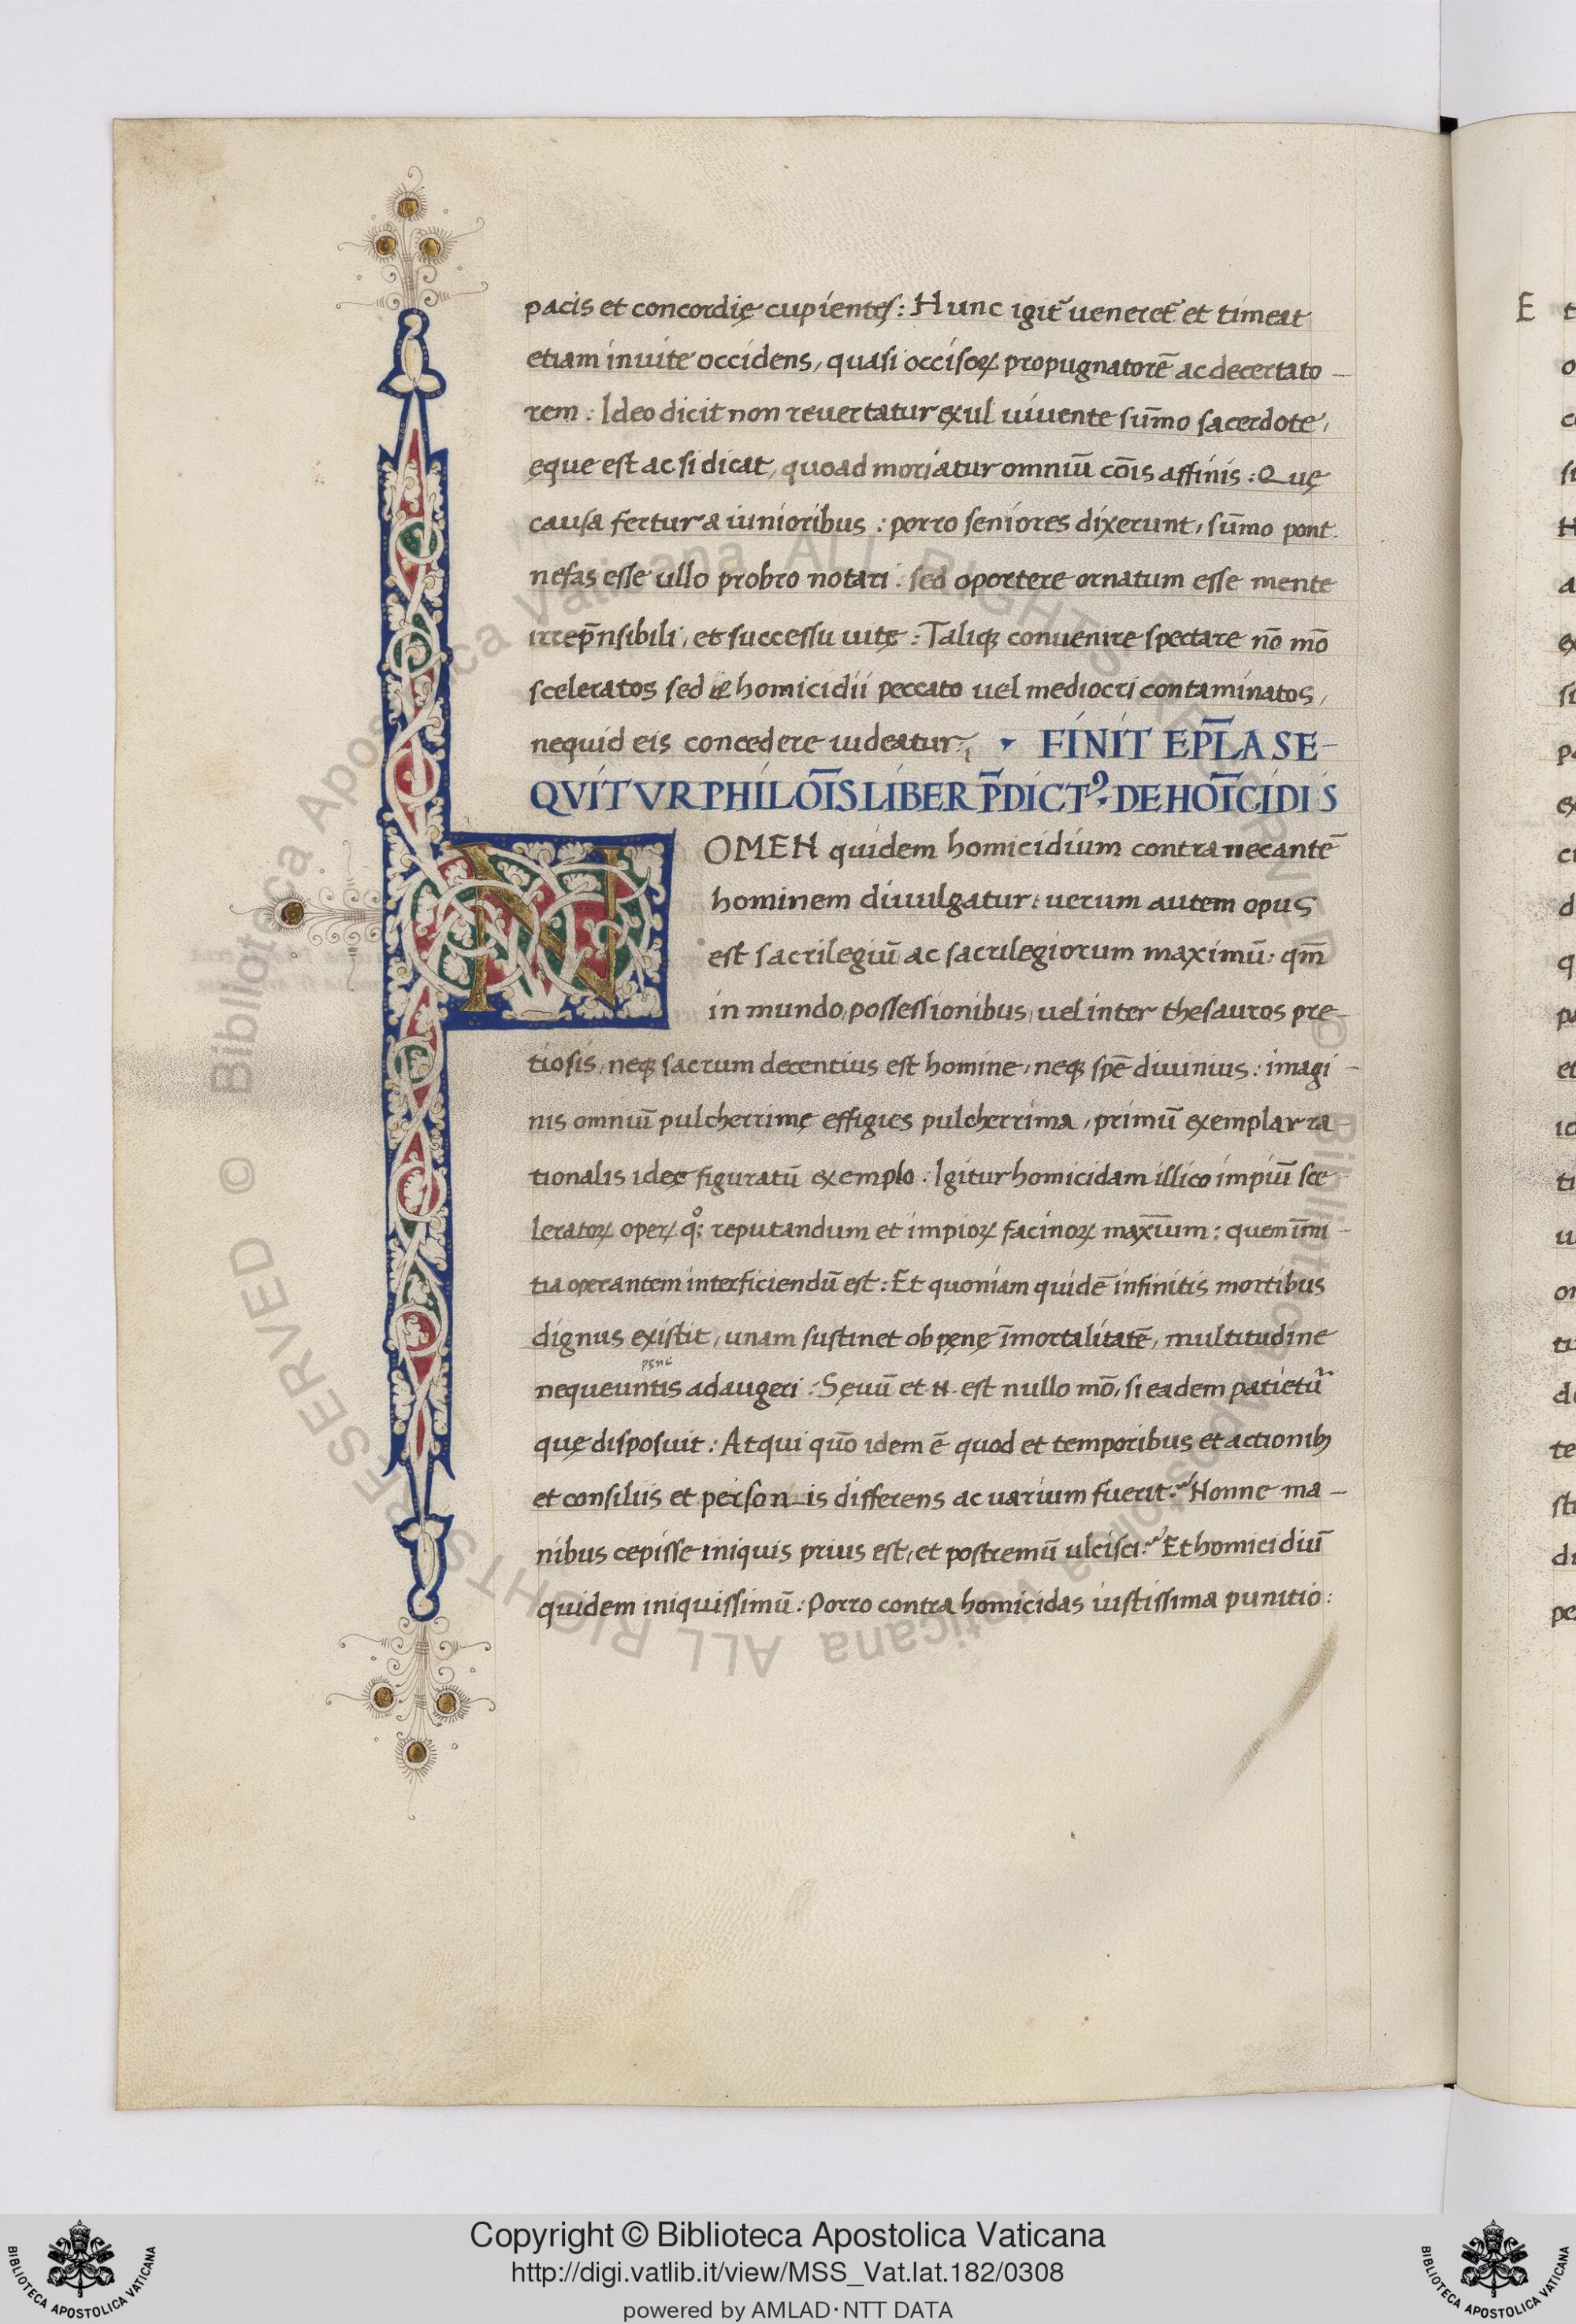 pacis et concordię cupientes: Hunc igit᷑ ueneret᷑ et timeat
etiam inuite occidens, quasi occisoꝝ propugnatorē ac decertato-
rem: Ideo dicit non reuertatur exul uiuente sūmo sacerdote,
ęque est ac si dicat, quoad moriatur omniū cōis affinis: Quę
causa fertur a iunioribus: porro seniores dixerunt, sūmo pont.
nefas esse ullo probro notari: sed oportere ornatum esse mente
irrep̄nsibili, et successu uitę: Taliqꝫ conuenire spectare nō mō
sceleratos sed homicidii peccato uel mediocri contaminatos,
nequid eis concedere uideatur;
FINIT EPL̄A SE-
QVITVR PHILOĪS LIBER P̄DICTꝰ. DE HOĪCIDIIS
NOMEN quidem homicidium contra necantē
hominem diuulgatur: uerum autem opus
est sacrilegiū ac sacrilegiorum maximū: qm̄
in mundo, possessionibus, uel inter thesauros pre-
tiosis, neqꝫ sacrum decentius est homine, neqꝫ spē diuinius: imagi-
nis omniū pulcherrimę effigies pulcherrima, primū exemplar ra-
tionalis idęę figuratū exemplo: Igitur homicidam illico impiū sce
leratoꝝ opeꝝ qͦꝫ reputandum et impioꝝ facinoꝝ maxīum: quem īmi-
tia operantem interficiendū est: Et quoniam quidē infinitis mortibus
dignus existit, unam sustinet ob pęnę īmortalitatē, multitudine
pęnę
nequeuntis adaugeri: Sęuū et .N. est nullo mō, si eadem patietu᷑
quę disposuit: Atqui quō idem ē quod et temporibus et actionibꝫ
et consiliis et person_is differens ac uarium fuerit? Nonne ma-
nibus cepisse iniquis prius est, et postremū ulcisci? Et homicidiū
quidem iniquissimū: Porro contra homicidas iustissima punitio:
Copyright © Biblioteca Apostolica Vaticana
http://digi.vatlib.it/view/MSS_Vat.lat.182/0308
powered by AMLAD·NTT DATA